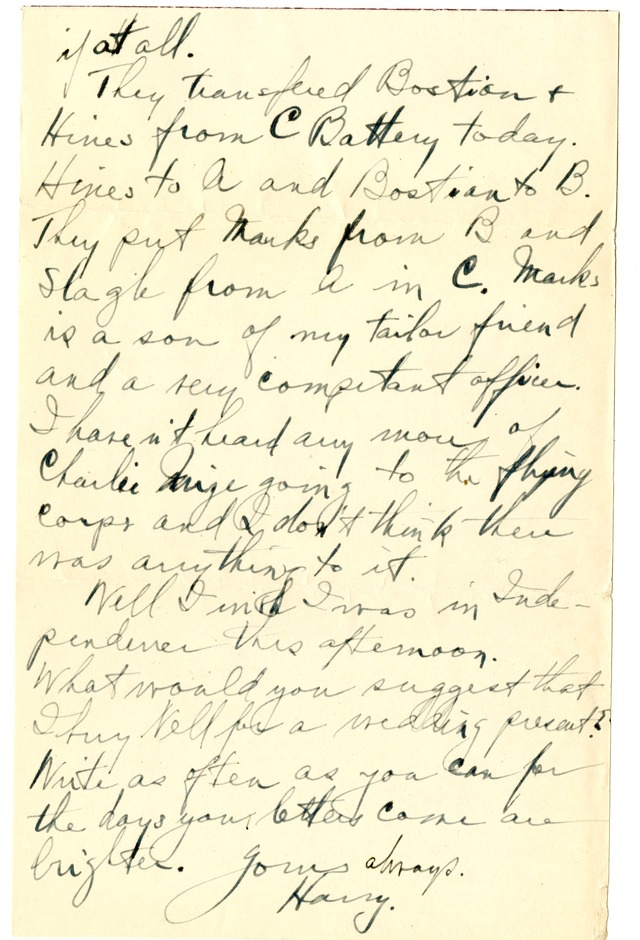 if at all.
They transfered Bostian +
Hines from C Battery today.
Hines to A and Bostian to B.
They put Marks from B and
Slagle from A in C. Marks
is a son of my tailor friend
and a very competant officer.
I haven't heard any more of
Charlie Mize going to the flying
corps and I don't think there
was anything to it.
Well I wish I was in Inde-
pendence this afternoon.
What would you suggest that
I buy Nell for a wedding present?
Write as often as you can for
the days your letters come are
brighter. Yours always.
Harry.